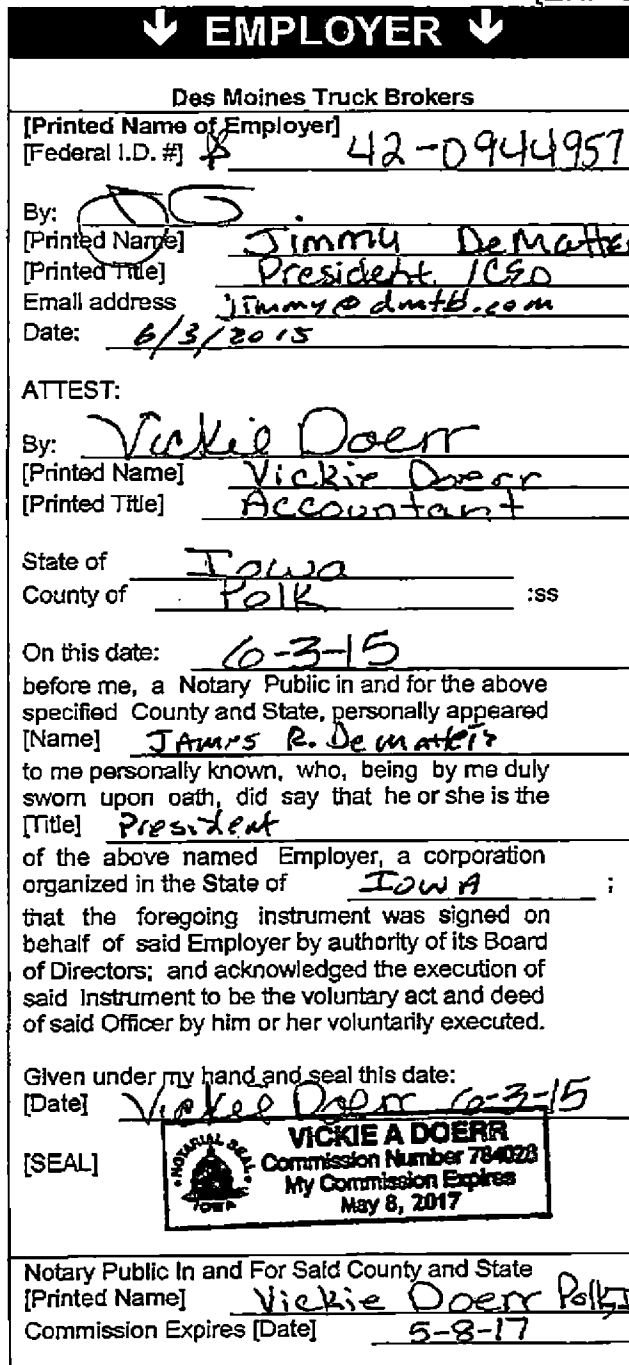 ↓ EMPLOYER ↓
Des Moines Truck Brokers
[Printed Name of Employer]
[Federal I.D. #] 42-0944957
By:
[Printed Name] Jimmy DeMatte
[Printed Title] President / CEO
Email address jimmy@dmtb.com
Date: 6/3/2015
ATTEST:
By: Vickie Doerr
[Printed Name] Vickie Doerr
[Printed Title] Accountant
State of Iowa
County of Polk :ss
On this date: 6-3-15
before me, a Notary Public in and for the above
specified County and State, personally appeared
[Name] James R. DeMatteis
to me personally known, who, being by me duly
sworn upon oath, did say that he or she is the
[Title] President
of the above named Employer, a corporation
organized in the State of IOWA ;
that the foregoing instrument was signed on
behalf of said Employer by authority of its Board
of Directors; and acknowledged the execution of
said Instrument to be the voluntary act and deed
of said Officer by him or her voluntarily executed.
Given under my hand and seal this date:
[Date] Vickie Doerr 6-3-15
[SEAL]
NOTARIAL SEAL
IOWA
VICKIE A DOERR
Commission Number 784028
My Commission Expires
May 8, 2017
Notary Public In and For Said County and State
[Printed Name] Vickie Doerr Polk
Commission Expires [Date] 5-8-17